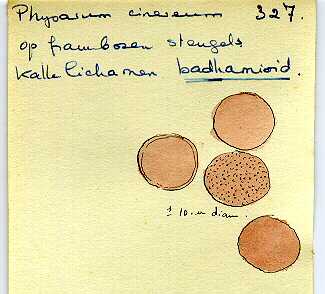 Physarum cinereum 327.
op frambozen stengels
Kalk lichamen badhamioid.
± 10 µ diam.